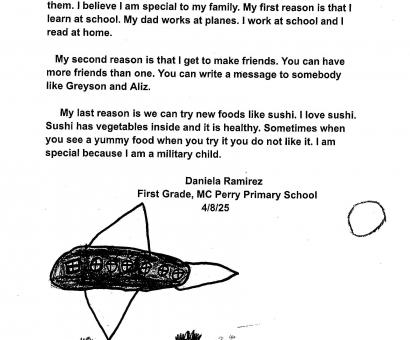 them. I believe I am special to my family. My first reason is that I
learn at school. My dad works at planes. I work at school and I
read at home.
My second reason is that I get to make friends. You can have
more friends than one. You can write a message to somebody
like Greyson and Aliz.
My last reason is we can try new foods like sushi. I love sushi.
Sushi has vegetables inside and it is healthy. Sometimes when
you see a yummy food when you try it you do not like it. I am
special because I am a military child.
Daniela Ramirez
First Grade, MC Perry Primary School
4/8/25